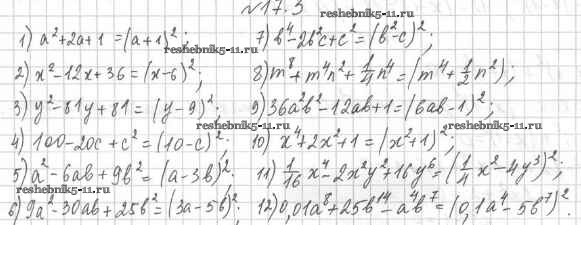 №17.3
reshebnik5-11.ru
1) a²+2a+1 =(a+1)²; 7) b⁴-2b²c+c²=(b²-c)²;
reshebnik5-11.ru
2) x²-12x+36=(x-6)²; 8) m⁸+m⁴n²+1/4n⁴=(m⁴+1/2n²);
reshebnik5-11.ru
3) y²-81y+81=(y-9)²; 9) 36a²b²-12ab+1=(6ab-1)²;
reshebnik5-11.ru
4) 100-20c+c²=(10-c)²; 10) x⁴+2x²+1=(x²+1)²;
reshebnik5-11.ru
5) a²-6ab+9b²=(a-3b)²; 11) 1/16x⁴-2x²y²+16y⁶=(1/4x²-4y³)²;
reshebnik5-11.ru
6) 9a²-30ab+25b²=(3a-5b)²; 12) 0,01a⁸+25b¹⁴-a⁴b⁷=(0,1a⁴-5b⁷)².